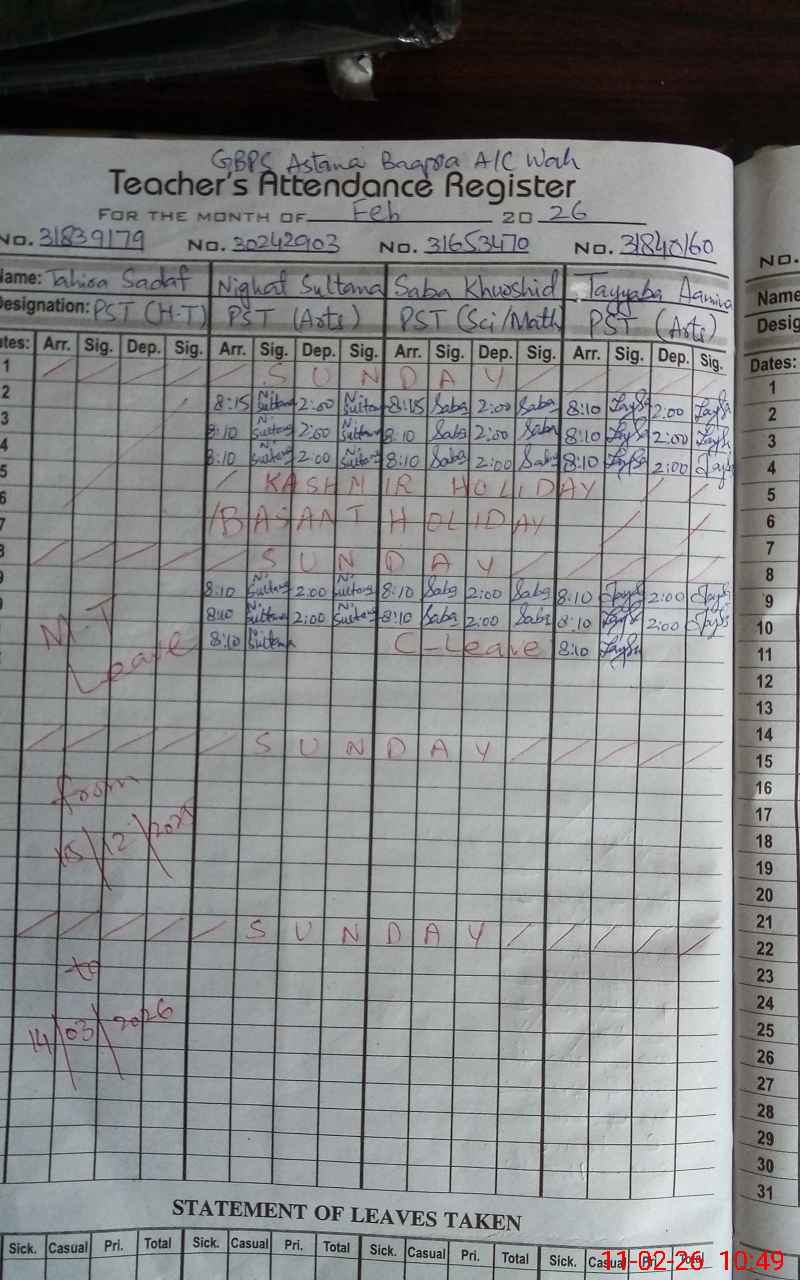 GBPS Astana Baqpra A/C Wah
Teacher's Attendance Register
FOR THE MONTH OF Feb 20 26
No. 31839179 No. 30242903 No. 31653470 No. 31840160
Name: Tahira Sadaf Nighat Sultana Saba Khurshid Tayyaba Aamira
Designation: PST (H-T) PST (Arts) PST (Sci/Math) PST (Arts)
Dates: Arr. Sig. Dep. Sig. Arr. Sig. Dep. Sig. Arr. Sig. Dep. Sig. Arr. Sig. Dep. Sig.
1 SUNDAY
2 8:15 N. Sultana 2:00 N. Sultana 8:15 Saba 2:00 Saba 8:10 2:00
3 8:10 N. Sultana 2:00 N. Sultana 8:10 Saba 2:00 Saba 8:10 2:00
4 8:10 N. Sultana 2:00 N. Sultana 8:10 Saba 2:00 Saba 8:10 2:00
5 KASHMIR HOLIDAY
6 BASANT HOLIDAY
7
8 SUNDAY
9 8:10 N. Sultana 2:00 N. Sultana 8:10 Saba 2:00 Saba 8:10 2:00
8:10 N. Sultana 2:00 N. Sultana 8:10 Saba 2:00 Saba 8:10 2:00
8:10 N. Sultana C-Leave 8:10
M.T
Leave
SUNDAY
from
15/12/2025
SUNDAY
to
14/03/2026
STATEMENT OF LEAVES TAKEN
Sick. Casual Pri. Total Sick. Casual Pri. Total Sick. Casual Pri. Total Sick. Casual Pri. Total
No.
Name
Desig
Dates:
1
2
3
4
5
6
7
8
9
10
11
12
13
14
15
16
17
18
19
20
21
22
23
24
25
26
27
28
29
30
31
11-02-26 10:49